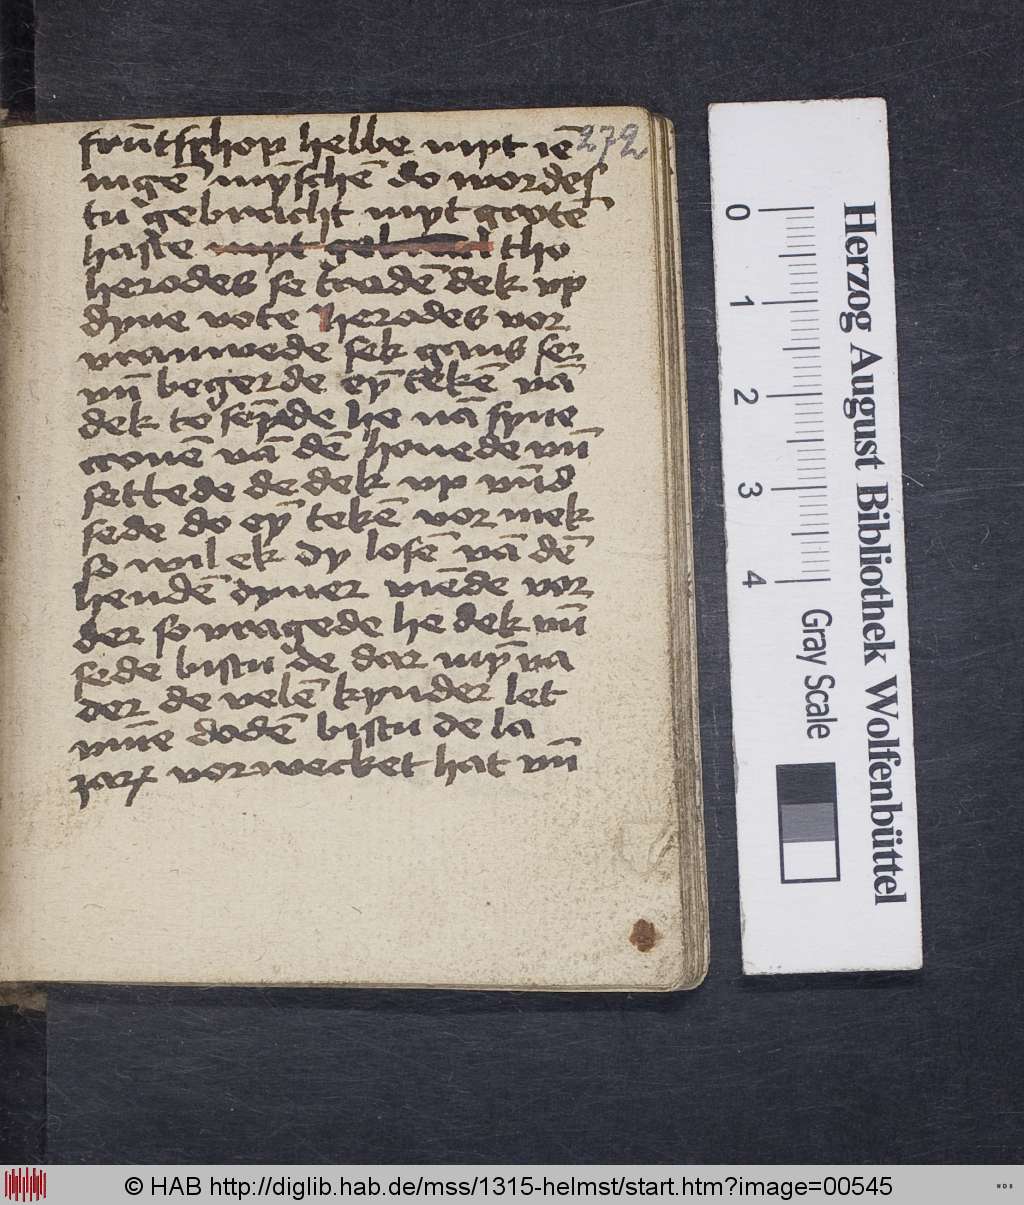 frūtschop hebbe myt iē 272
nigē mȳschē do wordes
tu gebracht myt grotē
haste myt gebracht tho
herodes se tradē dek vp
dyne vote herodes vor
vrauwede sek gans ser
vn̄ begerde eȳ tekē vā
dek to sēde he nā syne
cronē vā dē houede vn̄
settede de dek vp vn̄d
sede do eȳ tekē vor mek
so wil ek dy losē vā dē
hendē dyner viēde vor
der so vragede he dek vn̄
sede bistu de dar mȳ va
der de velē kynder let
vm̄e dodē bistu de la
zarꝰ vorwecket hat vn̄
0
1
2
3
4
Gray Scale
Herzog August Bibliothek Wolfenbüttel
© HAB http://diglib.hab.de/mss/1315-helmst/start.htm?image=00545